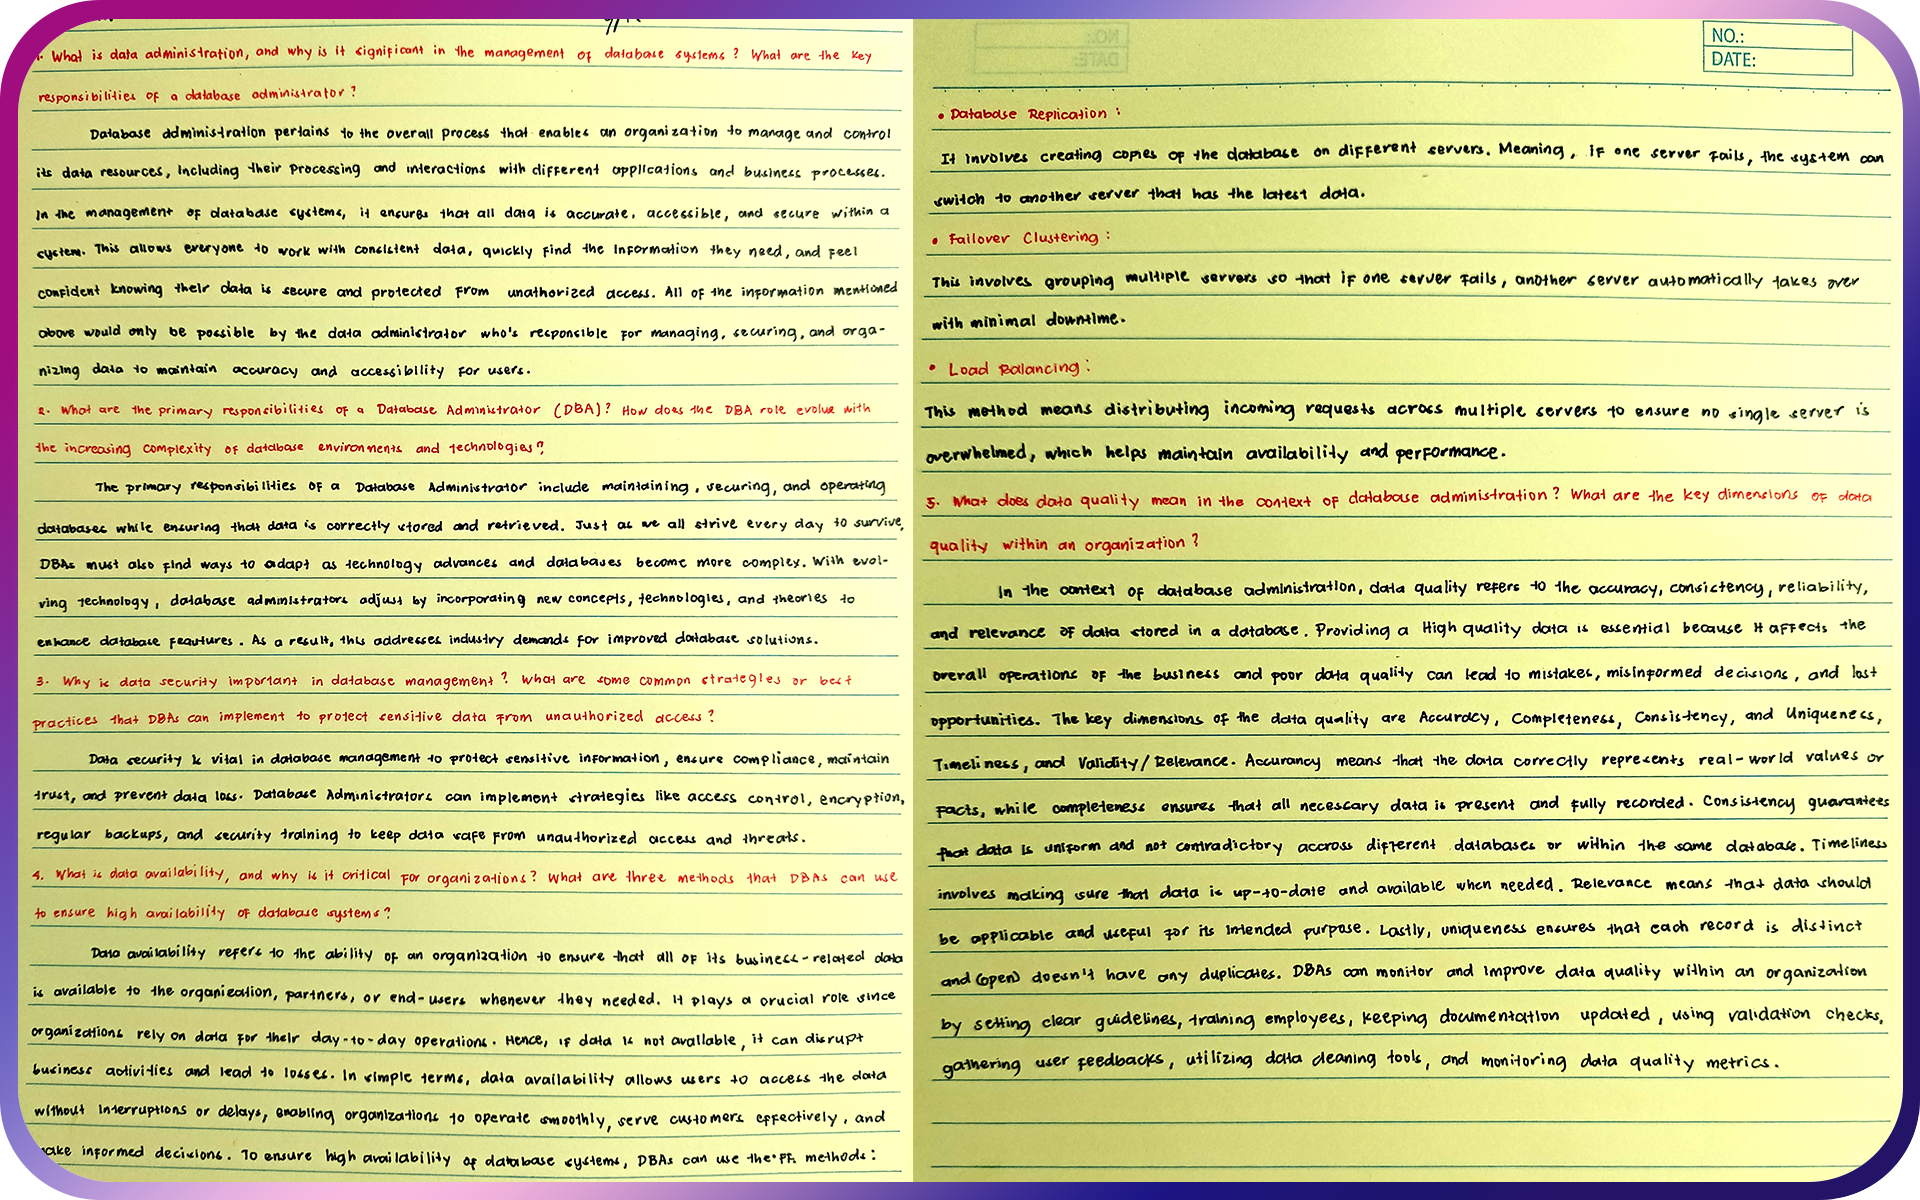 1. What is data administration, and why is it significant in the management of database systems? What are the key
responsibilities of a database administrator?
Database administration pertains to the overall process that enables an organization to manage and control
its data resources, including their processing and interactions with different applications and business processes.
In the management of database systems, it ensures that all data is accurate, accessible, and secure within a
system. This allows everyone to work with consistent data, quickly find the information they need, and feel
confident knowing their data is secure and protected from unathorized access. All of the information mentioned
above would only be possible by the data administrator who's responsible for managing, securing, and orga-
nizing data to maintain accuracy and accessibility for users.
2. What are the primary responsibilities of a Database Administrator (DBA)? How does the DBA role evolve with
the increasing complexity of database environments and technologies?
The primary responsibilities of a Database Administrator include maintaining, securing, and operating
databases while ensuring that data is correctly stored and retrieved. Just as we all strive every day to survive,
DBAs must also find ways to adapt as technology advances and databases become more complex. With evol-
ving technology, database administrators adjust by incorporating new concepts, technologies, and theories to
enhance database feautures. As a result, this addresses industry demands for improved database solutions.
3. Why is data security important in database management? What are some common strategies or best
practices that DBAs can implement to protect sensitive data from unauthorized access?
Data security is vital in database management to protect sensitive information, ensure compliance, maintain
trust, and prevent data loss. Database Administrators can implement strategies like access control, encryption,
regular backups, and security training to keep data safe from unauthorized access and threats.
4. What is data availability, and why is it critical for organizations? What are three methods that DBAs can use
to ensure high availability of database systems?
Data availability refers to the ability of an organization to ensure that all of its business-related data
is available to the organization, partners, or end-users whenever they needed. It plays a crucial role since
organizations rely on data for their day-to-day operations. Hence, if data is not available, it can disrupt
business activities and lead to losses. In simple terms, data availability allows users to access the data
without interruptions or delays, enabling organizations to operate smoothly, serve customers effectively, and
make informed decisions. To ensure high availability of database systems, DBAs can use the ff. methods:
NO.:
DATE:
• Database Replication:
It involves creating copies of the database on different servers. Meaning, if one server fails, the system can
switch to another server that has the latest data.
• Failover Clustering:
This involves grouping multiple servers so that if one server fails, another server automatically takes over
with minimal downtime.
• Load Balancing:
This method means distributing incoming requests across multiple servers to ensure no single server is
overwhelmed, which helps maintain availability and performance.
5. What does data quality mean in the context of database administration? What are the key dimensions of data
quality within an organization?
In the context of database administration, data quality refers to the accuracy, consistency, reliability,
and relevance of data stored in a database. Providing a High quality data is essential because it affects the
overall operations of the business and poor data quality can lead to mistakes, misinformed decisions, and lost
opportunities. The key dimensions of the data quality are Accuracy, Completeness, Consistency, and Uniqueness,
Timeliness, and Validity/Relevance. Accurancy means that the data correctly represents real-world values or
facts, while completeness ensures that all necessary data is present and fully recorded. Consistency guarantees
that data is uniform and not contradictory accross different databases or within the same database. Timeliness
involves making sure that data is up-to-date and available when needed. Relevance means that data should
be applicable and useful for its intended purpose. Lastly, uniqueness ensures that each record is distinct
and (open) doesn't have any duplicates. DBAs can monitor and improve data quality within an organization
by setting clear guidelines, training employees, keeping documentation updated, using validation checks,
gathering user feedbacks, utilizing data cleaning tools, and monitoring data quality metrics.